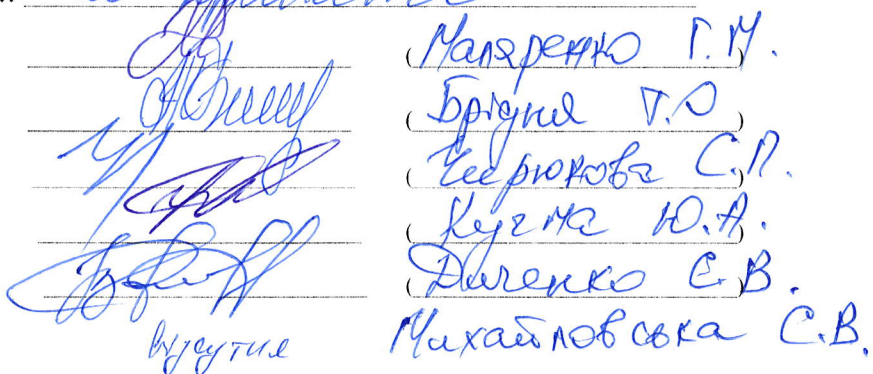 (Маляренко Г.М.)
(Брідня Т.О)
(Чирюкова С.П.)
(Кузма Ю.А.)
(Дяченко Є.В.)
відсутня Михайловська С.В.